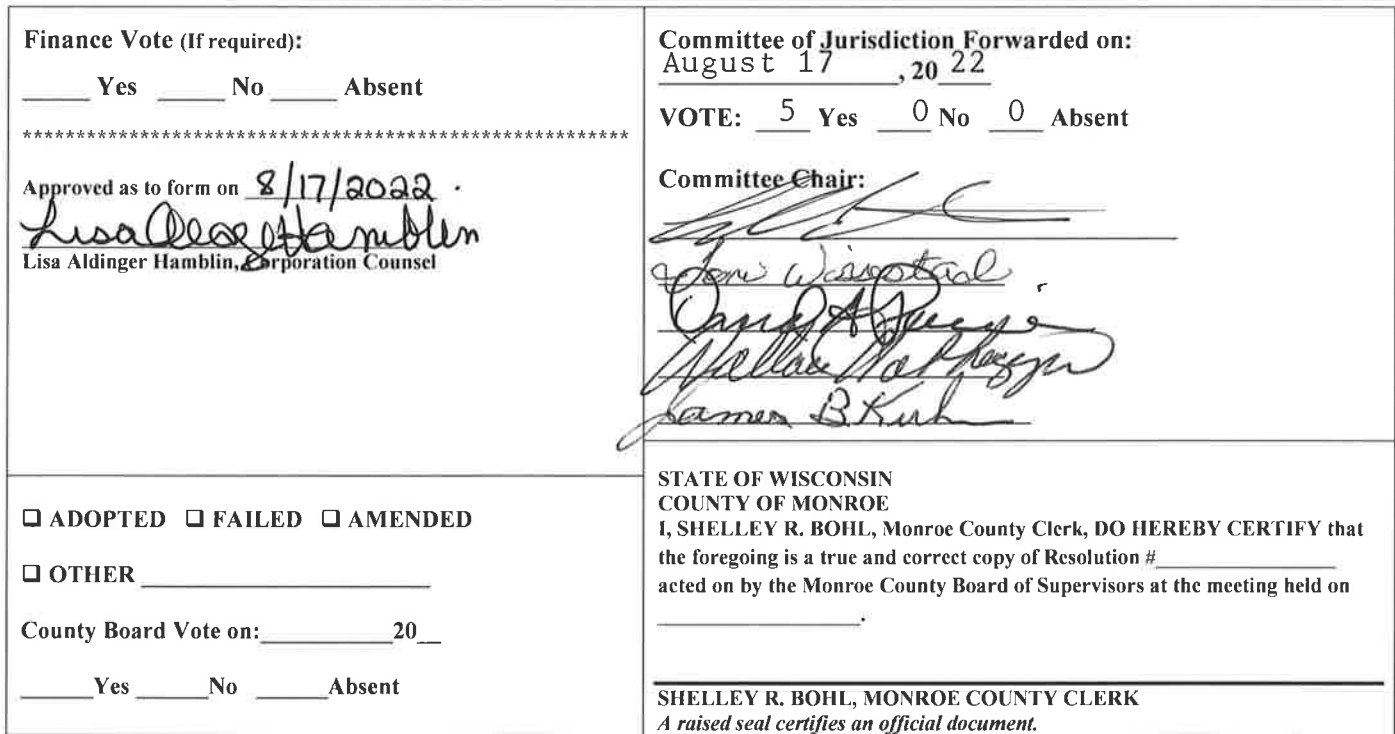 Finance Vote (If required):
_____ Yes _____ No _____ Absent
********************************************************
Approved as to form on 8/17/2022.
Lisa Aldinger Hamblin
Lisa Aldinger Hamblin, Corporation Counsel
❑ ADOPTED ❑ FAILED ❑ AMENDED
❑ OTHER ____________________
County Board Vote on:__________20__
_____Yes _____No _____Absent
Committee of Jurisdiction Forwarded on:
August 17, 20 22
VOTE: 5 Yes 0 No 0 Absent
Committee Chair:
Toni Wissestad
James B. Kuhn
STATE OF WISCONSIN
COUNTY OF MONROE
I, SHELLEY R. BOHL, Monroe County Clerk, DO HEREBY CERTIFY that
the foregoing is a true and correct copy of Resolution #______________
acted on by the Monroe County Board of Supervisors at the meeting held on
________________.
SHELLEY R. BOHL, MONROE COUNTY CLERK
A raised seal certifies an official document.